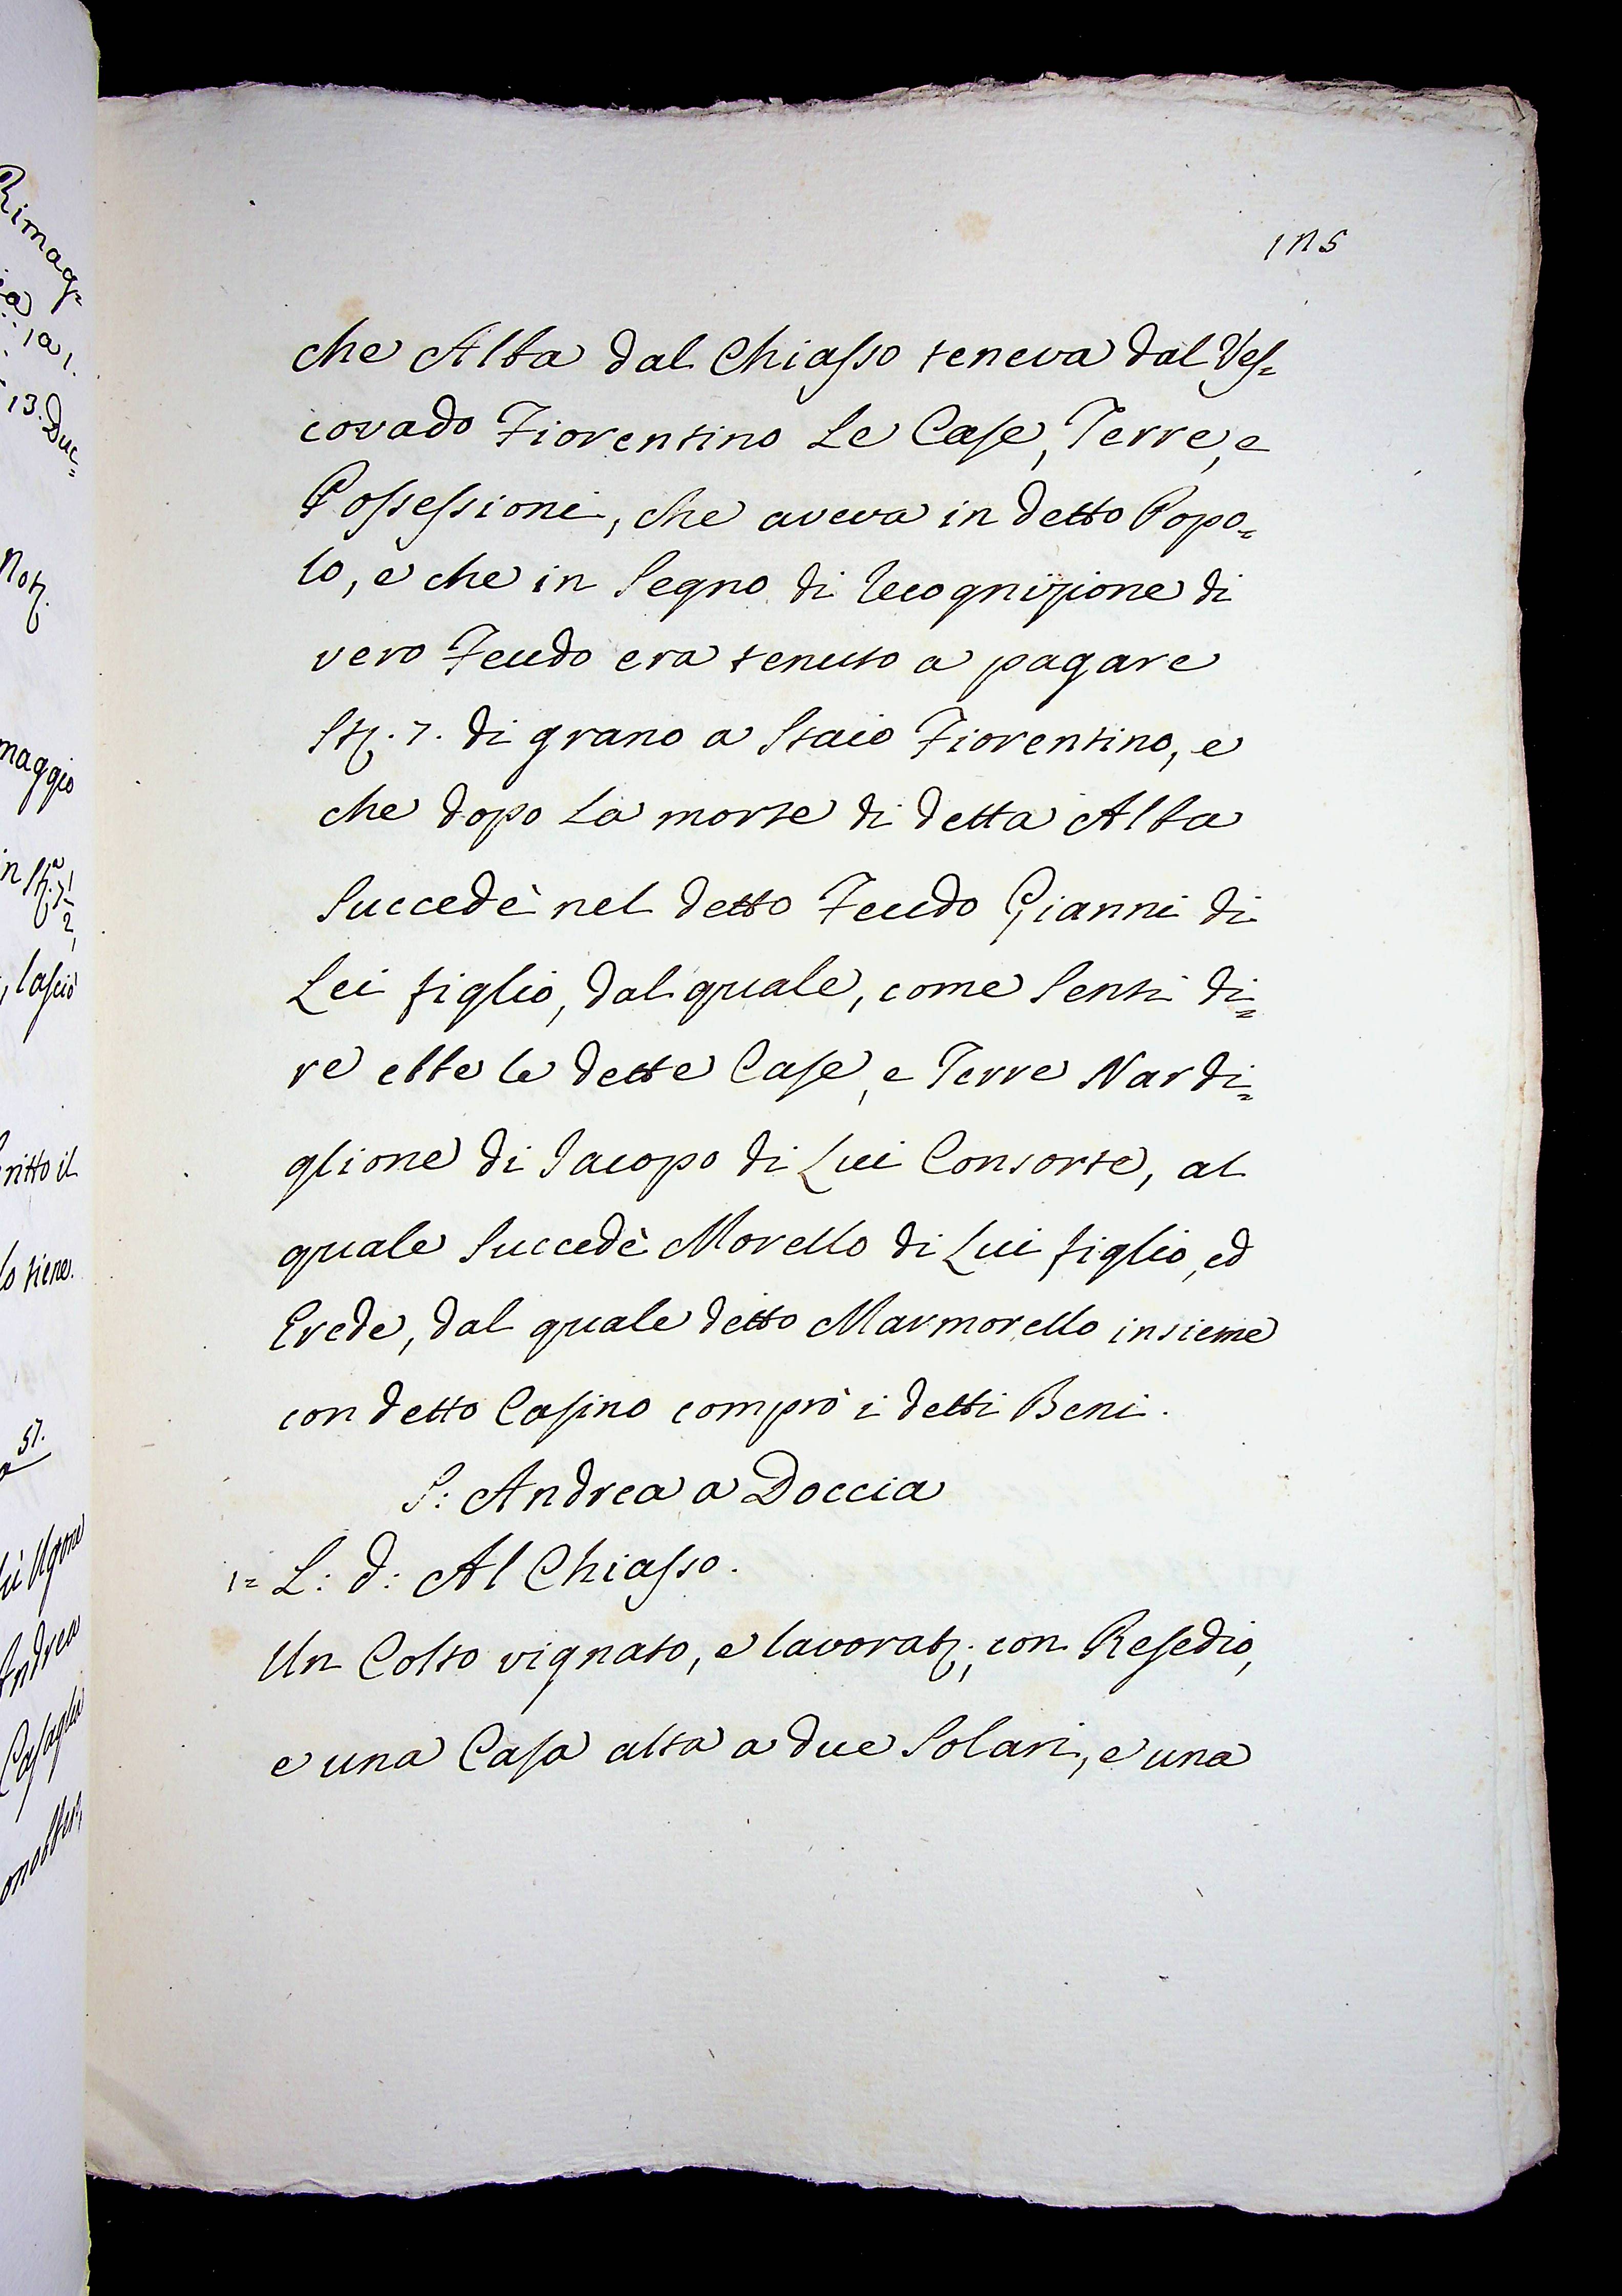 115
che Alba dal Chiasso teneva dal Ves=
covado Fiorentino Le Case, Terre, e
Possessioni, che aveva in detto Popo=
lo, e che in Segno di recognizione di
vero Feudo era tenuto a pagare
Stą. 7. di grano a Staio Fiorentino, e
che dopo La morte di detta Alba
Succedè nel detto Feudo Gianni di
Lei figlio, dal quale, come Sentì di=
re ebbe le dette Case, e Terre Nardi=
glione di Jacopo di Lui Consorte, al
quale Succedè Morello di Lui figlio, ed
Erede, dal quale detto Marmorello insieme
con detto Casino comprò i detti Beni.
S: Andrea a Doccia
1= L: d: Al Chiasso.
Un Colto vignato, e lavorat; con Resedio,
e una Casa alta a due Solari, e una
maggio
, lasciò
ritto il
lo tiene.
51.